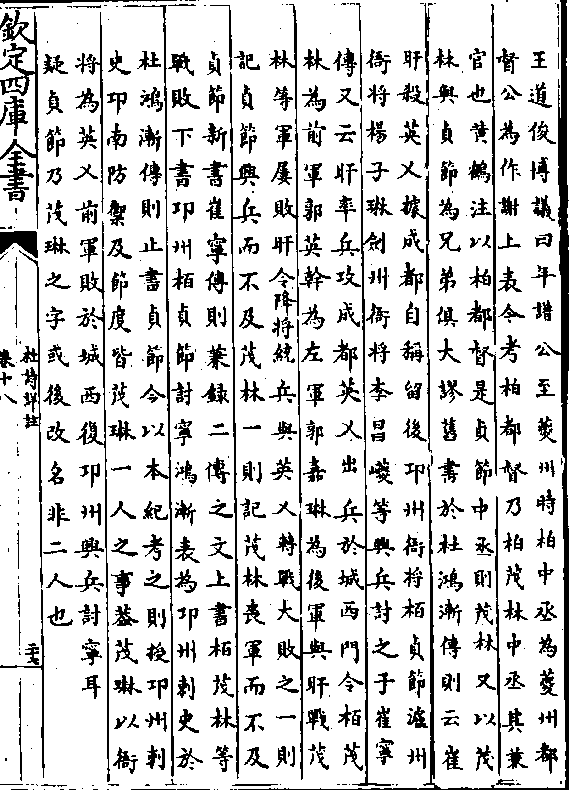 王道俊博議曰年譜公至夔州時柏中丞為夔州都
督公為作謝上表今考柏都督乃柏茂林中丞其兼
官也黄鶴注以柏都督是貞節中丞則茂林又以茂
林與貞節為兄弟俱大謬舊書於杜鴻漸傳則云崔
旰殺英乂據成都自稱留後邛州衙將柏貞節瀘州
衙將楊子琳劍州衙將李昌巙等興兵討之于崔寧
傳又云旰率兵攻成都英乂出兵於城西門令柏茂
林為前軍郭英幹為左軍郭嘉琳為後軍與旰戰茂
林等軍屢敗旰令降將統兵與英乂轉戰大敗之一則
記貞節興兵而不及茂林一則記茂林喪軍而不及
貞節新書崔寧傳則兼録二傳之文上書柏茂林等
戰敗下書邛州柏貞節討寧鴻漸表為邛州刺史於
杜鴻漸傳則止書貞節今以本紀考之則授邛州刺
史邛南防禦及節度皆茂琳一人之事蓋茂琳以衙
將為英乂前軍敗於城西復邛州興兵討寧耳
疑貞節乃茂琳之字或後改名非二人也
欽定四庫全書
杜詩詳註
卷十八